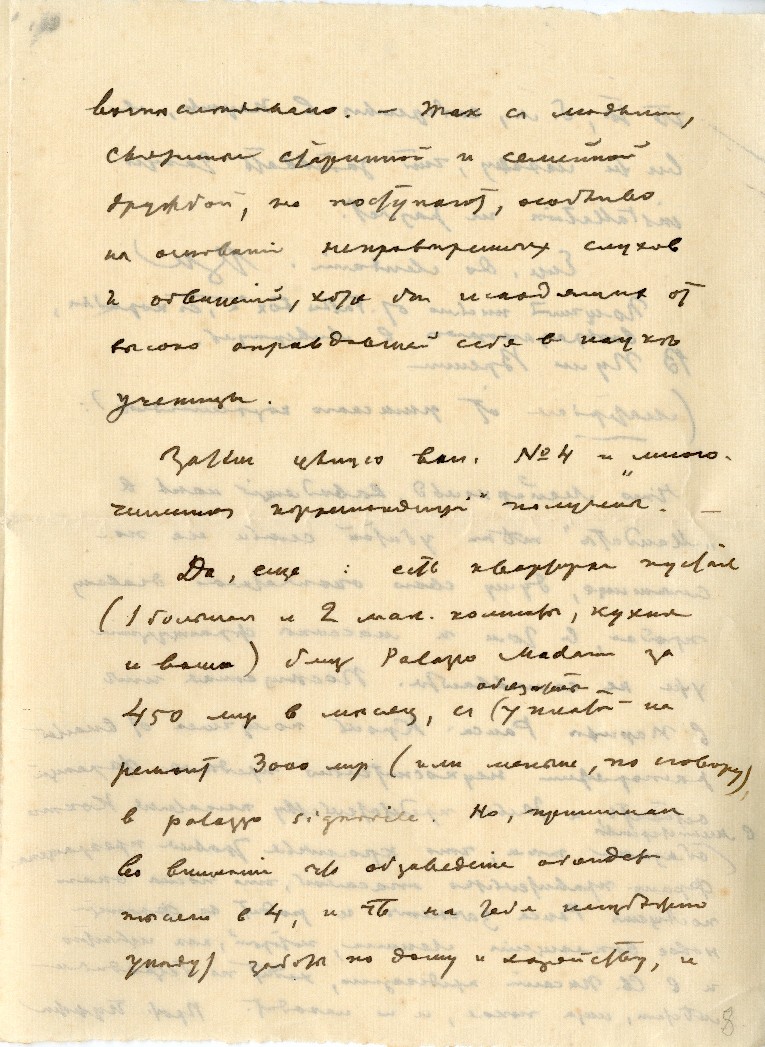 – Так съ людьми,
связанными старинной и семейной
дружбой, не поступают, особливо
на основаніи непроверенных слухов
и обвиненій, хотя бы исходящих от
высоко оправдавшей себя в науках
ученицы.
Затем цѣную вам. № 4 и „много-
численных корреспонденцій" получены. —
Да, еще : есть квартира пустая
(1 большая и 2 мал. комнаты, кухня
и ванна) близ Palazzo Madama за
450 лир в месяц, с уплатой на
обязат.
ремонт 3000 лир (или меньше, по сговору),
в palazzo signorile. Но, принимая
во вниманіе что обзаведеніе обойдется
тысячи в 4, и что на тебя неизбежно
упадут заботы по дому и хозяйству, и
8